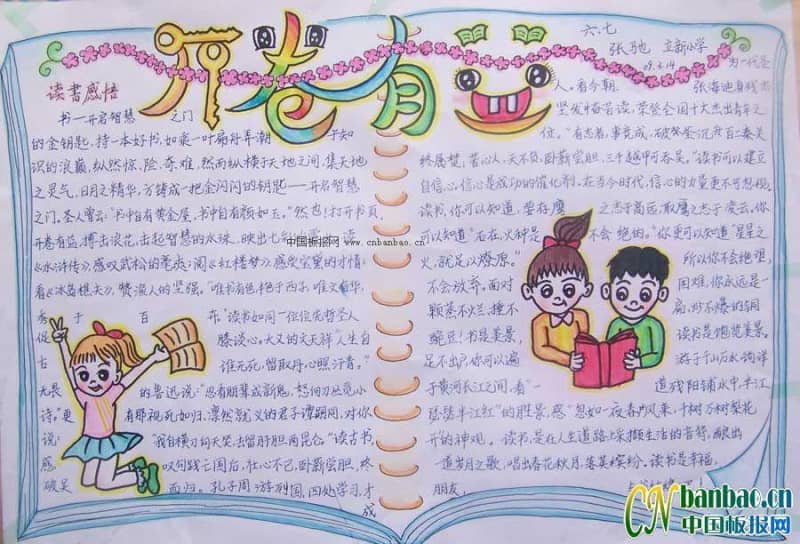 开卷有益
六.七
张驰 立新小学
读书感悟
书—开启智慧之门
的金钥匙，持一本好书，如乘一叶扁舟弄潮于知
识的浪巅，纵然惊、险、奇、难，然而纵横于天地之间，集天地
之灵气，日月之精华，方铸成一把金闪闪的钥匙——开启智慧
之门。圣人云："书中自有黄金屋，书中自有颜如玉。"然也！打开书页，
开卷有益，搏击浪花，击起智慧的水珠，映出七
《水浒传》，感叹武松的 阅《红楼梦》感受宝黛的才情；
看《冰岛 》，赞渔人的坚强。"唯书有色，艳于西子，唯文有华，
秀于百卉。"读书如同一位位先哲圣人
促膝谈心。大义的文天祥"人生自
古谁无死，留取丹心照汗青。"
无畏的鲁迅说："忍看朋辈成新鬼，怒向刀丛觅小
诗。"更有那视死如归，凛然就义的君子谭嗣同，对你
说："我自横刀向天笑，去留肝胆两昆仑。"读古书，
感叹句践亡国后，壮心不已，卧薪尝胆，终
破吴而归。孔子周游列国，四处学习，才
成
为一代圣
人。看今朝，张海迪身残志
坚发愤苦读，荣登全国十大杰出青年之
位。"有志者，事竟成，破釜沉舟，百二秦关
终属楚，苦心人，天不负，卧薪尝胆，三千越甲可吞吴。"读书可以建立
自信心，信心是成功的催化剂。在当今时代，信心的力量更不可忽视。
读书，你可以知道，要存鹰之志于高远，取鹰之志于凌云。你
可以知道"石在，火种是不会绝的。"你更可以知道"星星之
火，就足以燎原。"所以你不会绝望，
不会放弃。面对困难，你永远是一
颗蒸不烂、捶不扁、炒不爆的铜
豌豆！书是美景，读书是饱览美景。
足不出户，你可以遍游于千山万水，徜徉
于黄河长江之间，看"一道残阳铺水中，半江
瑟瑟半江红"的胜景，感"忽如一夜春风来，千树万树梨花
开"的神观。读书，是在人生道路上采撷生活的音符，
一道岁月之歌，唱出春花秋月，姿英缤纷。读书是幸福，
朋友，
中国板报网 www.cnbanbao.cn
CN banbao.cn
中国板报网